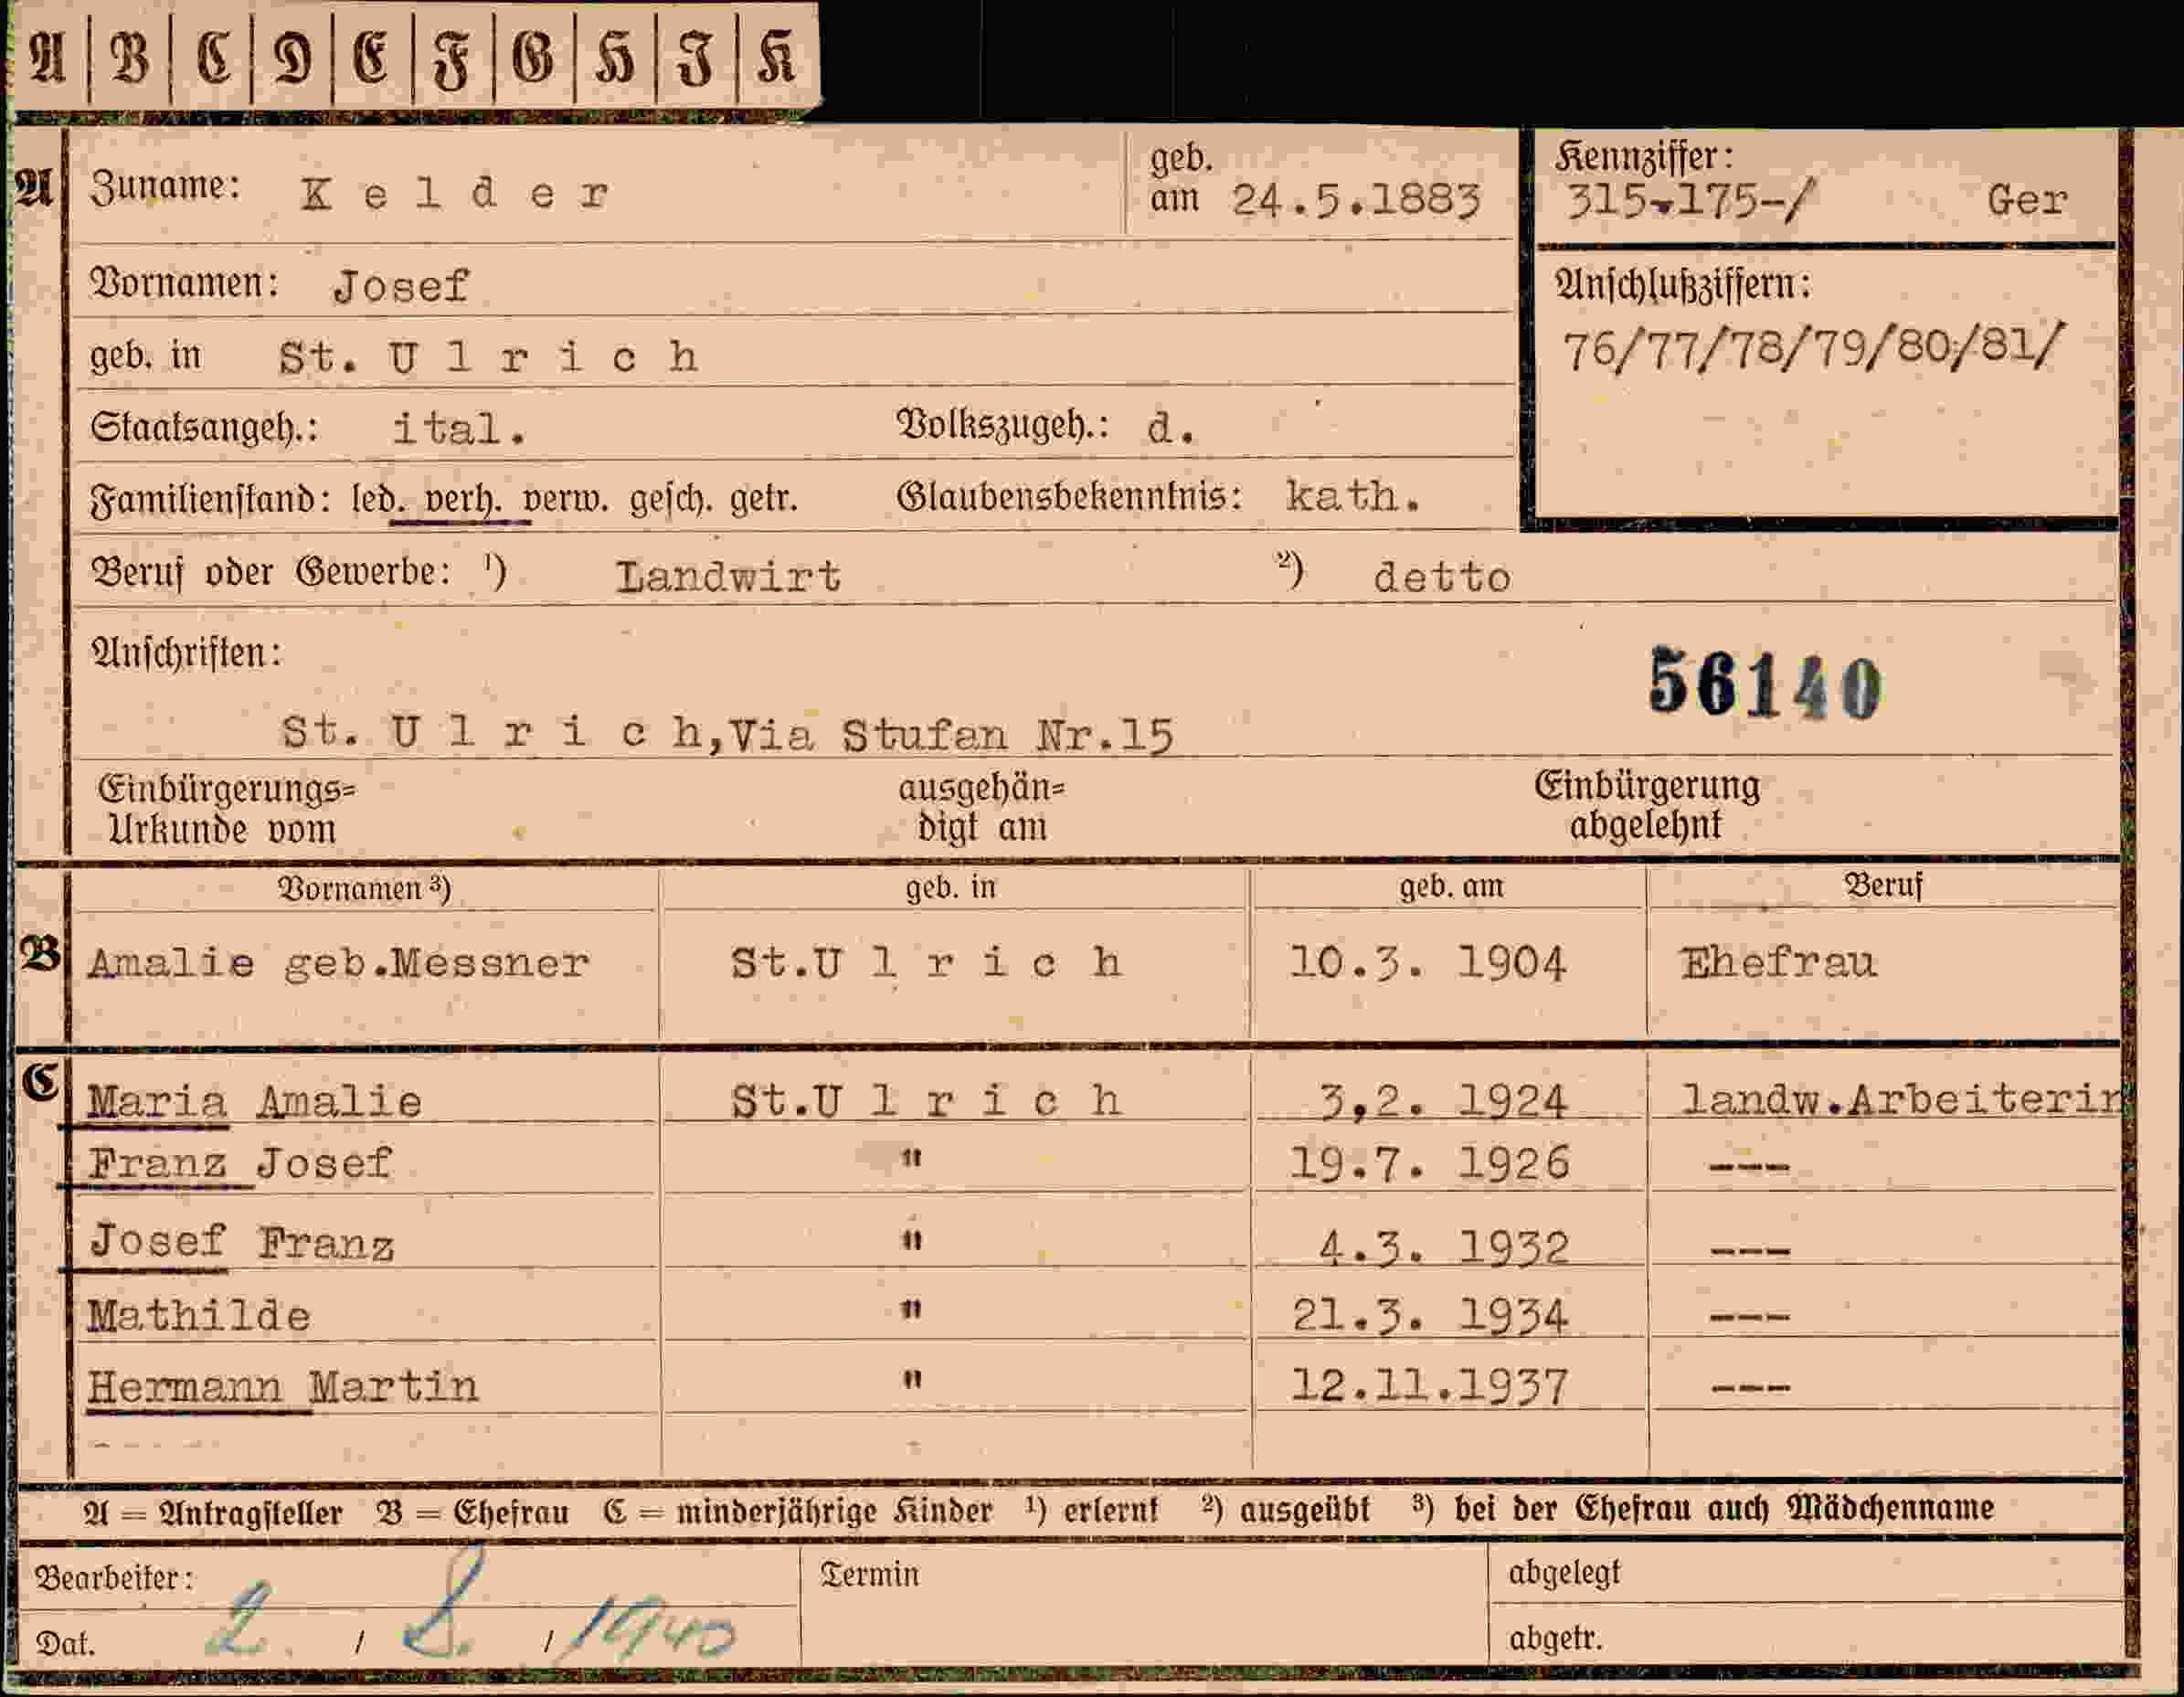 A | B | C | D | E | F | G | H | J | K
A Zuname: K e l d e r geb. am 24.5.1883 Kennziffer: 315-175-/ Ger
Vornamen: Josef Anschlußziffern:
geb. in St. U l r i c h 76/77/78/79/80/81/
Staatsangeh.: ital. Volkszugeh.: d.
Familienstand: led. verh. verw. gesch. getr. Glaubensbekenntnis: kath.
Beruf oder Gewerbe: ¹) Landwirt ²) detto
Anschriften: 56140
St. U l r i c h,Via Stufan Nr.15
Einbürgerungs= ausgehän= Einbürgerung
Urkunde vom digt am abgelehnt
Vornamen ³) geb. in geb. am Beruf
B Amalie geb.Messner St.U l r i c h 10.3. 1904 Ehefrau
C Maria Amalie St.U l r i c h 3,2. 1924 landw.Arbeiterin
Franz Josef " 19.7. 1926 ---
Josef Franz " 4.3. 1932 ---
Mathilde " 21.3. 1934 ---
Hermann Martin " 12.11.1937 ---
A = Antragsteller B = Ehefrau C = minderjährige Kinder ¹) erlernt ²) ausgeübt ³) bei der Ehefrau auch Mädchenname
Bearbeiter: Termin abgelegt
Dat. 2. / 8. / 1940 abgetr.